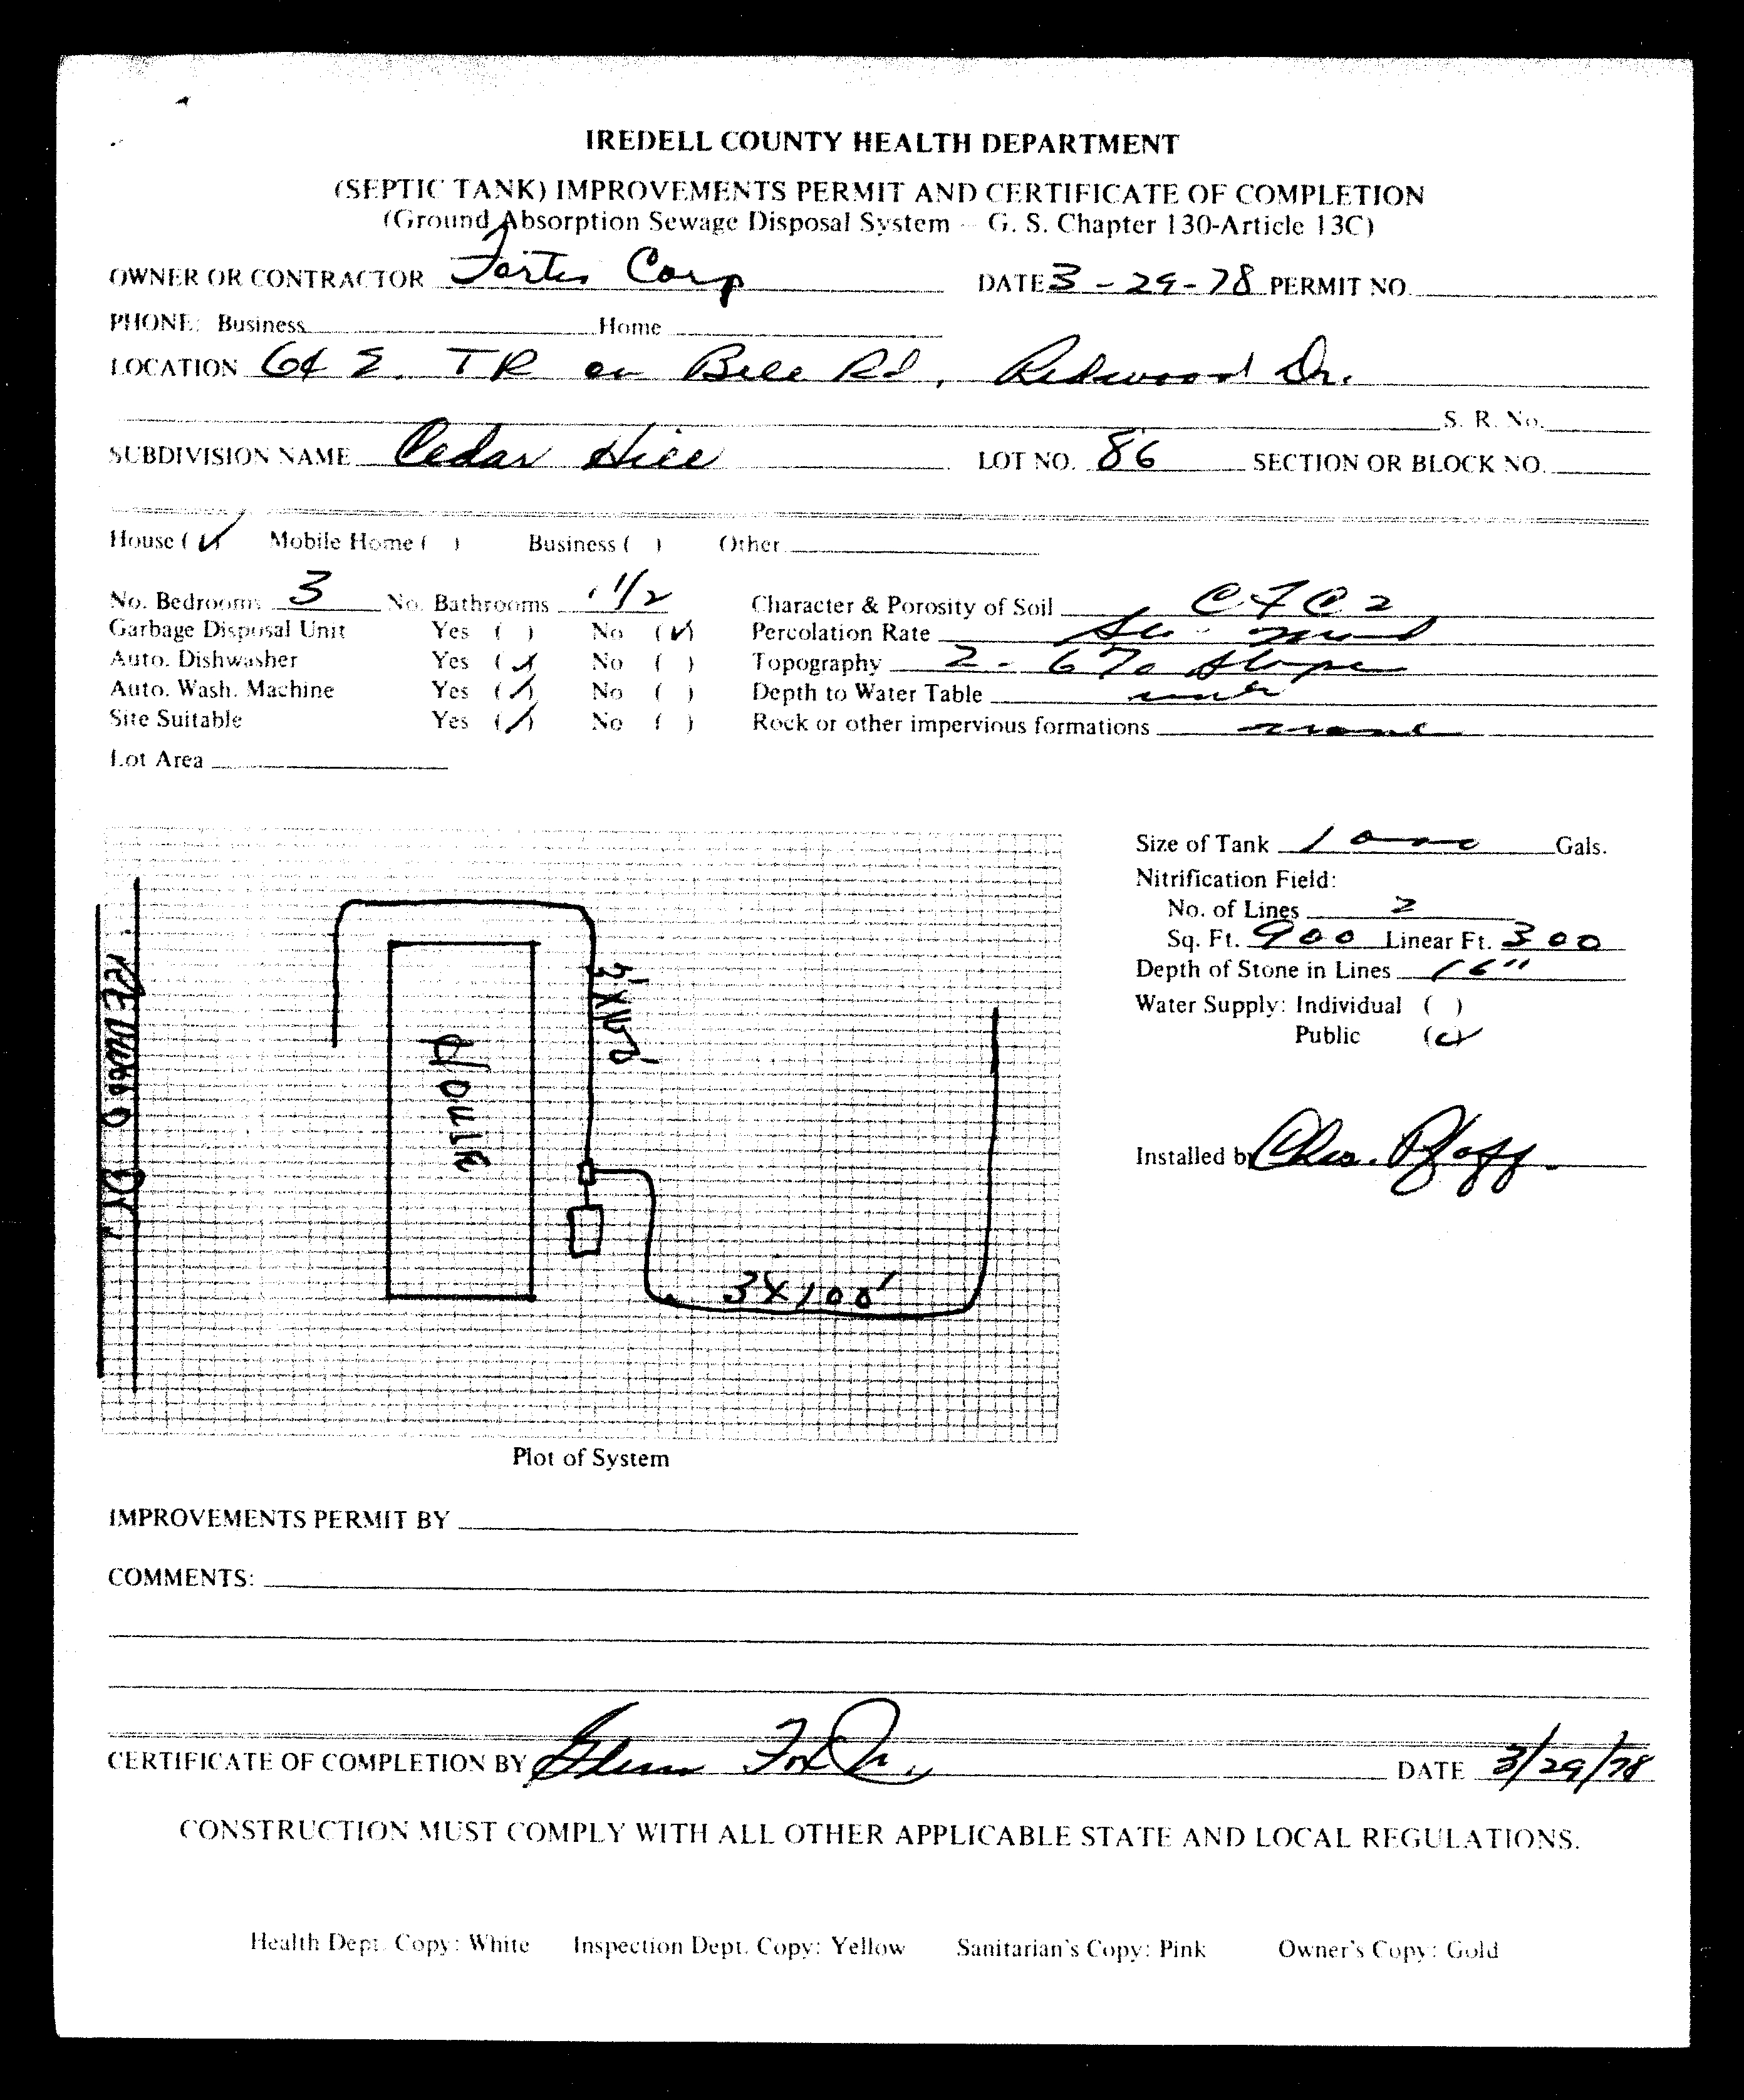 IREDELL COUNTY HEALTH DEPARTMENT
(SEPTIC TANK) IMPROVEMENTS PERMIT AND CERTIFICATE OF COMPLETION
(Ground Absorption Sewage Disposal System - G. S. Chapter 130-Article 13C)
OWNER OR CONTRACTOR Corp DATE 3-29-78 PERMIT NO.
PHONE: Business Home
LOCATION 64 E. TR on Bell Rd, Redwood Dr.
S. R. No.
SUBDIVISION NAME Cedar Hill LOT NO. 86 SECTION OR BLOCK NO.
House (✓) Mobile Home ( ) Business ( ) Other
No. Bedrooms 3 No. Bathrooms 1 1/2 Character & Porosity of Soil
Garbage Disposal Unit Yes ( ) No (✓) Percolation Rate
Auto. Dishwasher Yes (✓) No ( ) Topography 2-6% slope
Auto. Wash. Machine Yes (✓) No ( ) Depth to Water Table
Site Suitable Yes (✓) No ( ) Rock or other impervious formations none
Lot Area
Size of Tank 1000 Gals.
Nitrification Field:
No. of Lines 2
Sq. Ft. 900 Linear Ft. 300
Depth of Stone in Lines 16"
Water Supply: Individual ( )
Public (✓)
Installed by Chas. Pfaff.
REDWOOD Dr.
House
3'X100'
Plot of System
IMPROVEMENTS PERMIT BY
COMMENTS:
CERTIFICATE OF COMPLETION BY Glenn Fox Jr., DATE 3/29/78
CONSTRUCTION MUST COMPLY WITH ALL OTHER APPLICABLE STATE AND LOCAL REGULATIONS.
Health Dept. Copy: White Inspection Dept. Copy: Yellow Sanitarian's Copy: Pink Owner's Copy: Gold